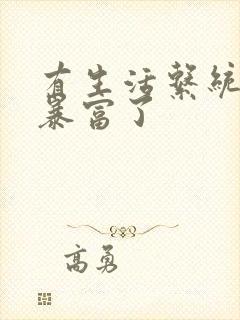 有生活繫統
暴富了
高勇